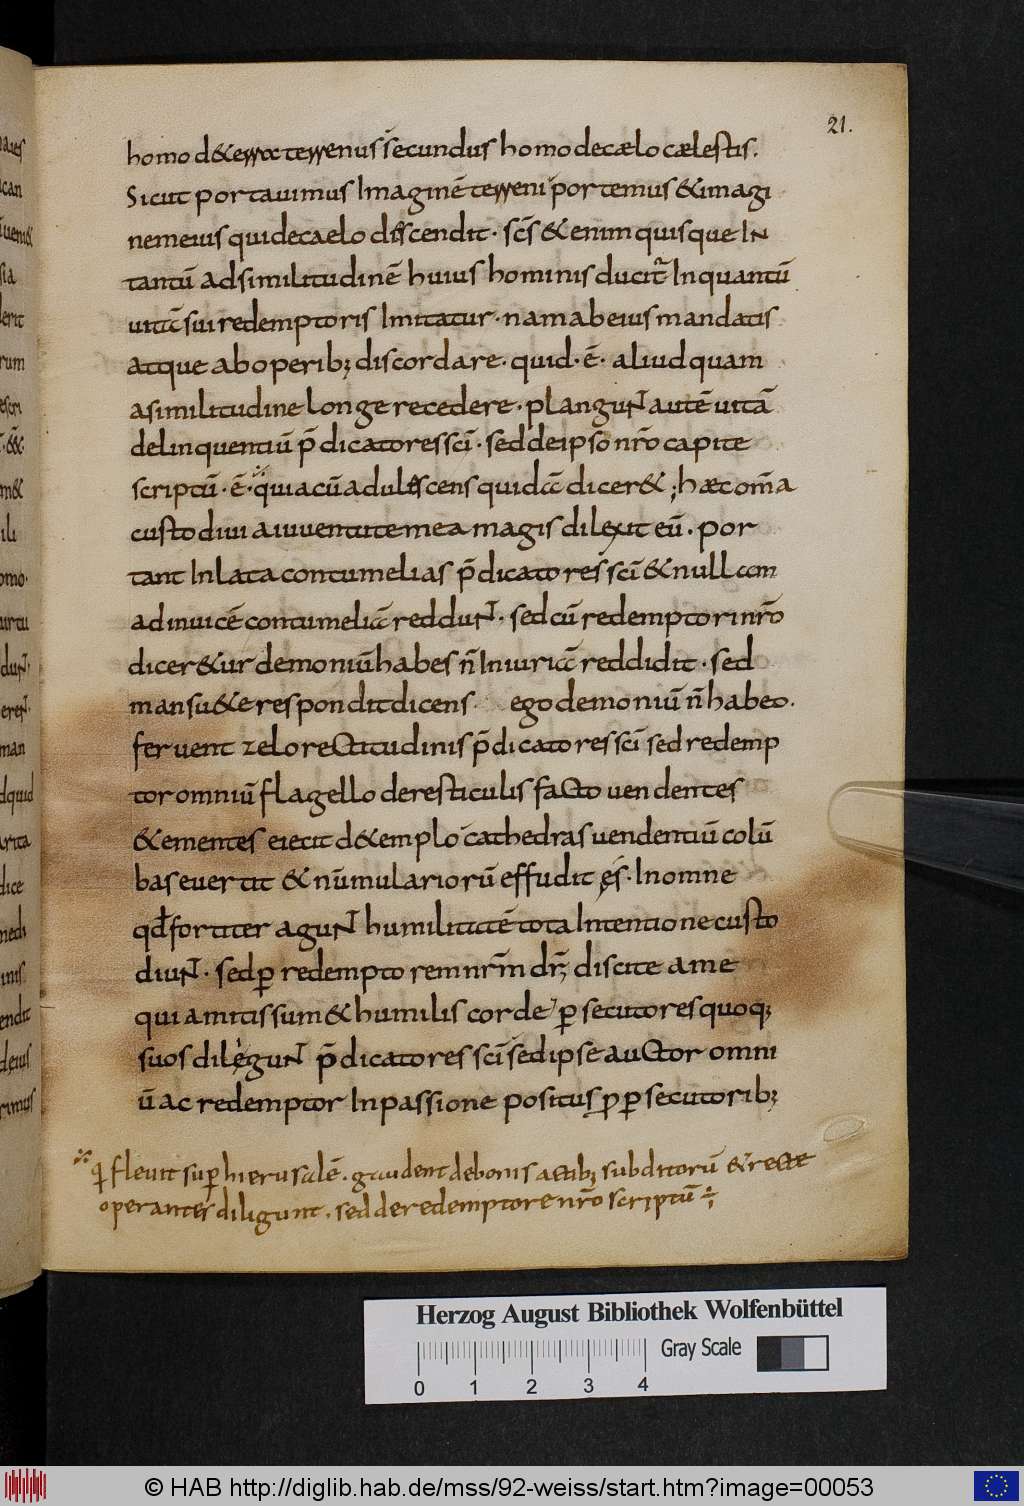 21.
homo d&erra terrenus secundus homo decælo cælestis.
Sicut portauimus Imaginē terreni portemus &imagi
nem eius qui decaelo discendit · scīs &enim quisque IN
tantū adsimilitudinē huius hominis ducit Inquantū
uitā sui redemptoris Imitatur · nam ab eius mandatis
atque ab operib; discordare · quid · ē · aliud quam
asimilitudine longe recedere · plangunt autē uitā
delinquentiū p̄dicatores scī · sed deipso nr̄o capite
scriptū · ē · quia cū adulescens quidā dicer& ; hæc omīa
custodiui a iuuentute mea magis dilexit eū · por
tant Inlata contumelias p̄dicatores scī & nullam
ad inuicē contumeliā reddunt · sed cū redemptori nr̄o
dicer&ur demoniū habes n̄ Iniuriā reddidit · sed
mansu&e respondit dicens ego demoniū n̄ habeo.
feruent zelo rectitudinis p̄dicatores scī sed redemp
tor omniū flagello deresticulis facto uendentes
&ementes eiecit d&emplo cathedras uendentiū colū
bas euertit & nūmulariorū effudit ęs · In omne
qđ fortiter agunt humilitatē tota Intentione custo
diunt · sed ꝑ redemptorem nr̄m dr̄ discite ame
quia mitis sum & humilis corde ꝑsecutores quoq;
suos diligunt p̄dicatores scī sed ipse auctor omni
ū ac redemptor Inpassione positus ꝓ ꝑsecutorib;
fleuit suꝑ hierusalē . gaudent debonis actib; subditorū & recte
operantes diligunt . sed de redemptore nr̄o scriptū ÷
Herzog August Bibliothek Wolfenbüttel
Gray Scale
0 1 2 3 4
© HAB http://diglib.hab.de/mss/92-weiss/start.htm?image=00053